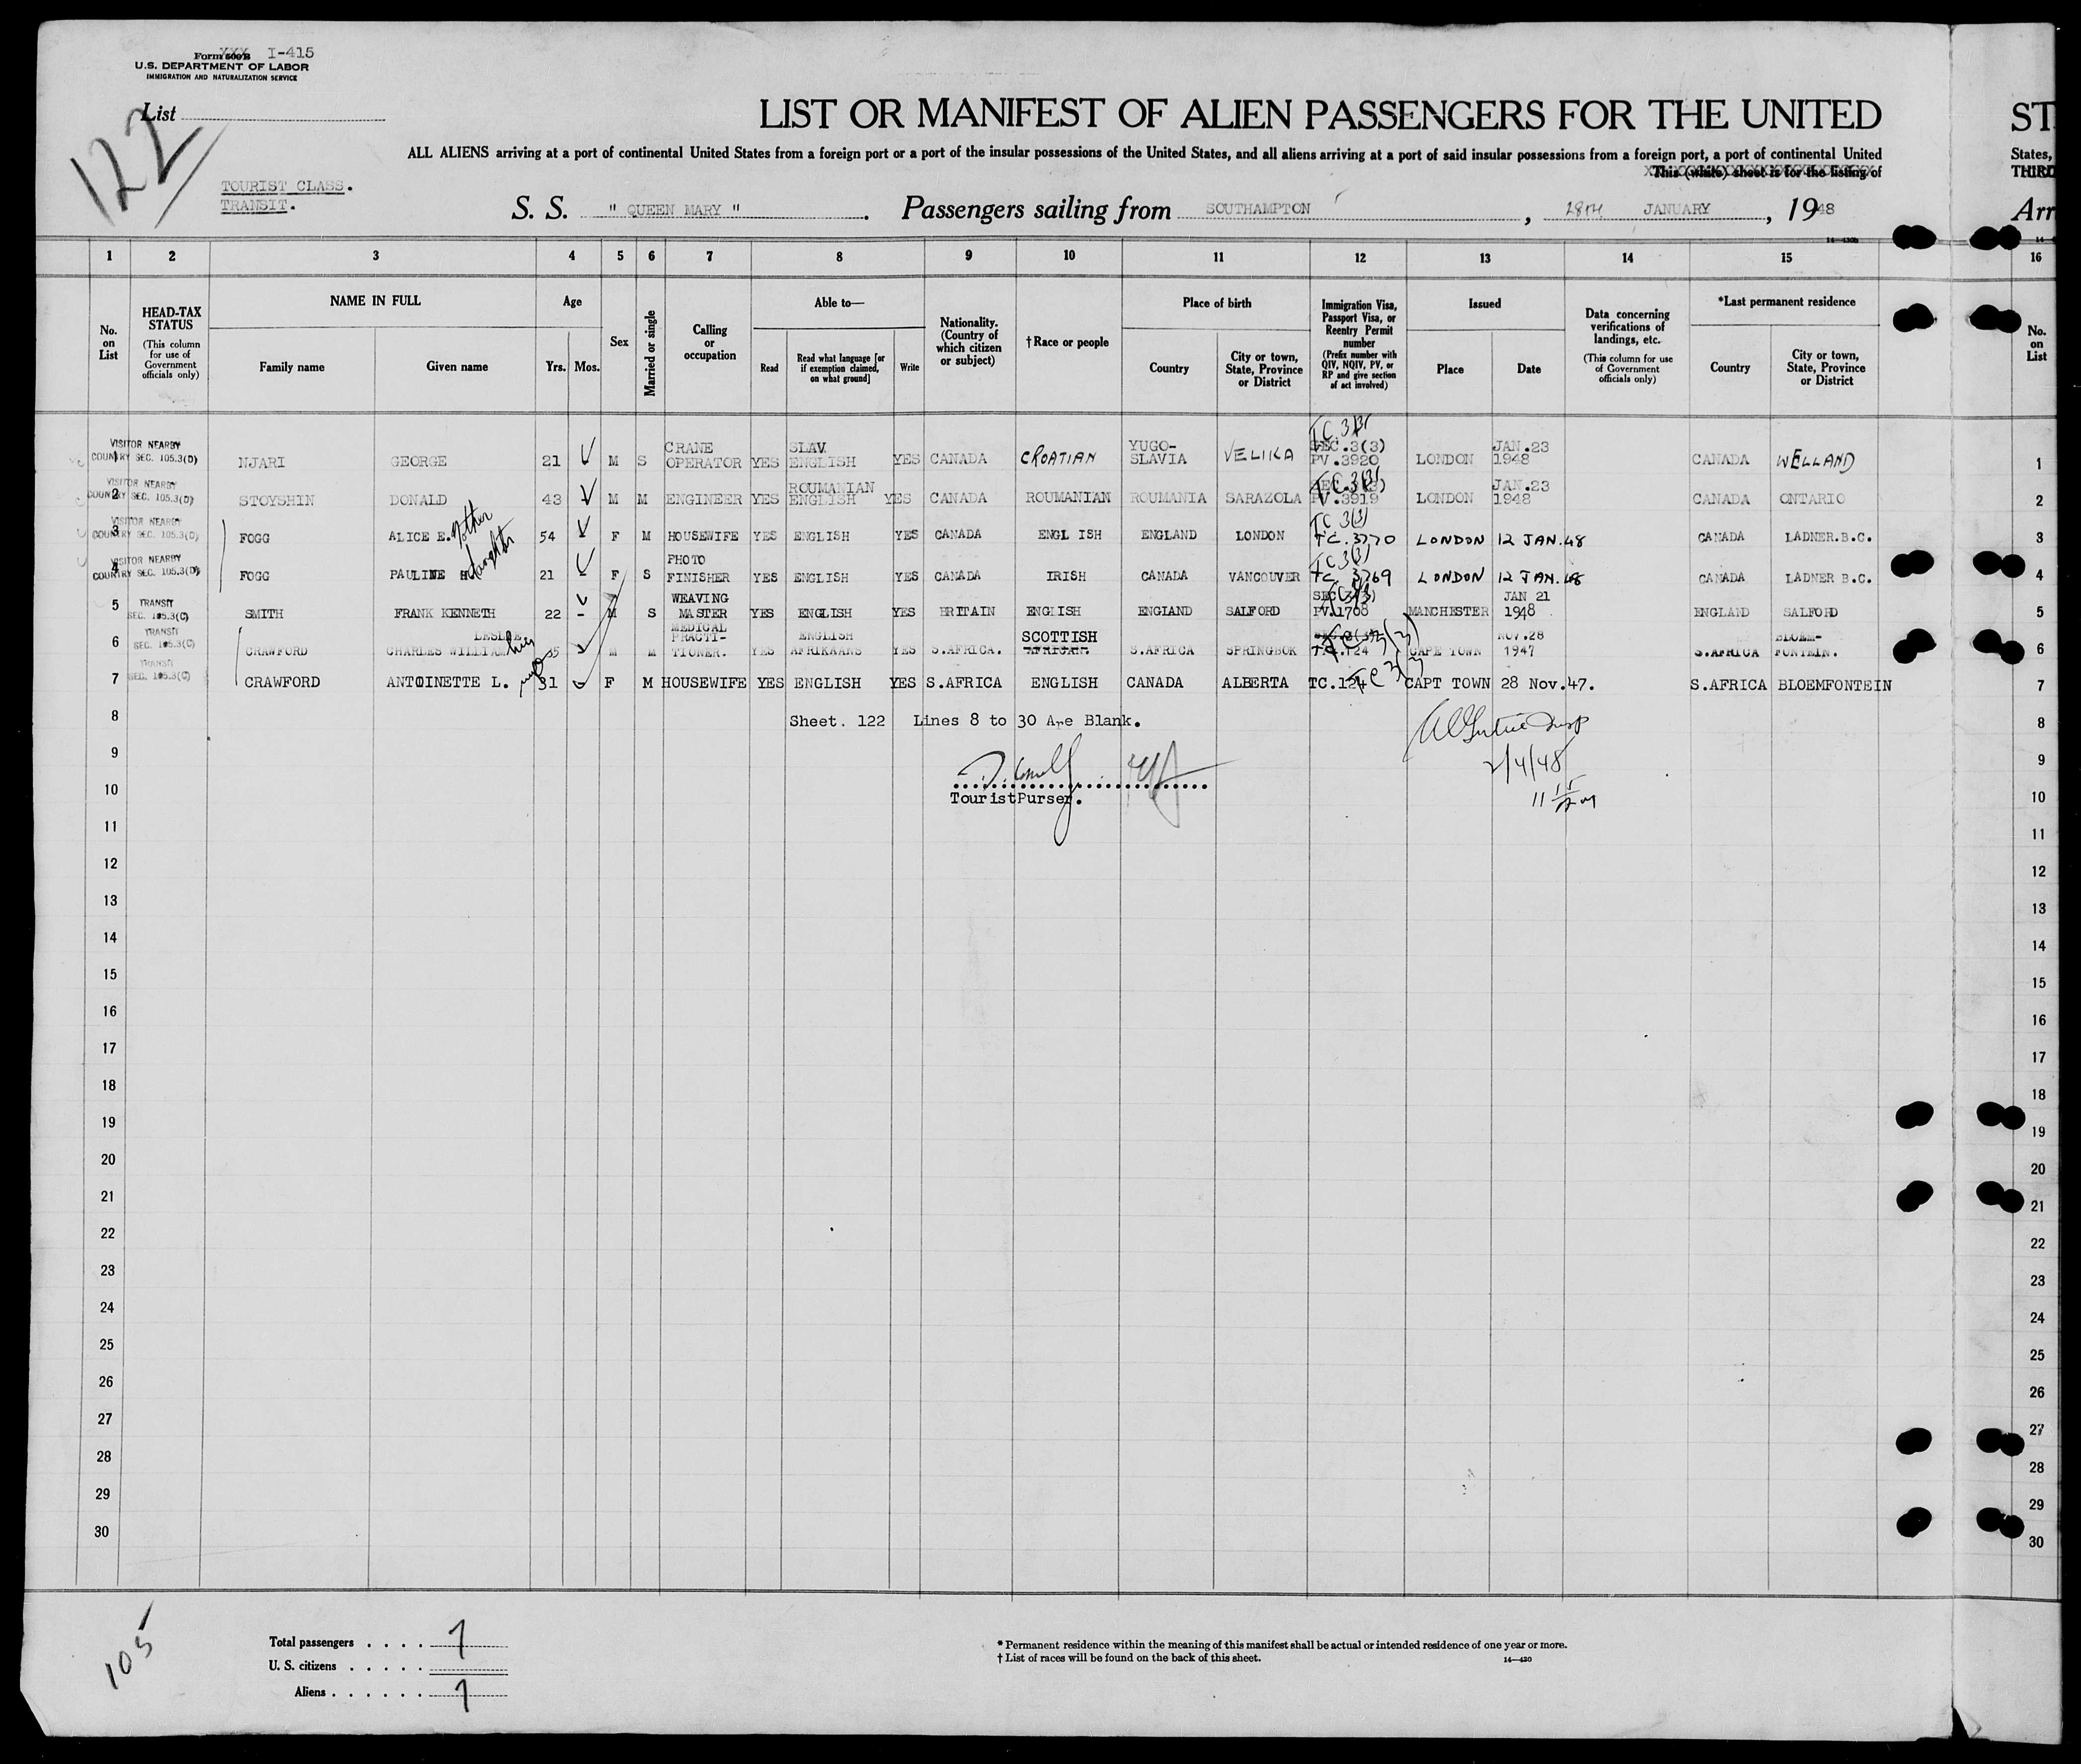 Form 500B XXX I-415
U.S. DEPARTMENT OF LABOR
IMMIGRATION AND NATURALIZATION SERVICE
List
122
LIST OR MANIFEST OF ALIEN PASSENGERS FOR THE UNITED ST
ALL ALIENS arriving at a port of continental United States from a foreign port or a port of the insular possessions of the United States, and all aliens arriving at a port of said insular possessions from a foreign port, a port of continental United States,
This (white) sheet is for the listing of THIRD
TOURIST CLASS.
TRANSIT.
S. S. " QUEEN MARY " . Passengers sailing from SOUTHAMPTON , 28TH JANUARY , 1948 Arr
1 2 3 4 5 6 7 8 9 10 11 12 13 14 15 16
No. on List
HEAD-TAX STATUS (This column for use of Government officials only)
NAME IN FULL Family name Given name
Age Yrs. Mos.
Sex
Married or single
Calling or occupation
Able to— Read Read what language [or if exemption claimed, on what ground] Write
Nationality. (Country of which citizen or subject)
†Race or people
Place of birth Country City or town, State, Province or District
Immigration Visa, Passport Visa, or Reentry Permit number (Prefix number with QIV, NQIV, PV, or RP and give section of act involved)
Issued Place Date
Data concerning verifications of landings, etc. (This column for use of Government officials only)
*Last permanent residence Country City or town, State, Province or District
No. on List
1 VISITOR NEARBY COUNTRY SEC. 105.3(D) NJARI GEORGE 21 M S CRANE OPERATOR YES SLAV ENGLISH YES CANADA CROATIAN YUGO-SLAVIA VELIKA TC 3(3) SEC.3(3) PV.3920 LONDON JAN.23 1948 CANADA WELLAND 1
2 VISITOR NEARBY COUNTRY SEC. 105.3(D) STOYSHIN DONALD 43 M M ENGINEER YES ROUMANIAN ENGLISH YES CANADA ROUMANIAN ROUMANIA SARAZOLA TC 3(3) SEC.3(3) PV.3919 LONDON JAN.23 1948 CANADA ONTARIO 2
3 VISITOR NEARBY COUNTRY SEC. 105.3(D) FOGG ALICE E. Mother 54 F M HOUSEWIFE YES ENGLISH YES CANADA ENGL ISH ENGLAND LONDON TC 3(3) TC.3770 LONDON 12 JAN.48 CANADA LADNER.B.C. 3
4 VISITOR NEARBY COUNTRY SEC. 105.3(D) FOGG PAULINE H daughter 21 - F S PHOTO FINISHER YES ENGLISH YES CANADA IRISH CANADA VANCOUVER TC 3(3) TC. 3769 LONDON 12 JAN.48 CANADA LADNER B.C. 4
5 TRANSIT SEC. 105.3(C) SMITH FRANK KENNETH 22 - M S WEAVING MASTER YES ENGLISH YES BRITAIN ENGLISH ENGLAND SALFORD SEC.3(3) PV.1708 MANCHESTER JAN 21 1948 ENGLAND SALFORD 5
6 TRANSIT SEC. 105.3(C) CRAWFORD CHARLES WILLIAM LESLIE 35 M M MEDICAL PRACTI-TIONER. YES ENGLISH AFRIKAANS YES S.AFRICA. SCOTTISH AFRICAN. S.AFRICA SPRINGBOK TC 3(3) TC.124 CAPE TOWN NOV.28 1947 S.AFRICA BLOEM-FONTEIN. 6
7 TRANSIT SEC. 105.3(C) CRAWFORD ANTOINETTE L. 31 F M HOUSEWIFE YES ENGLISH YES S.AFRICA ENGLISH CANADA ALBERTA TC.124 TC 3(3) CAPT TOWN 28 Nov.47. S.AFRICA BLOEMFONTEIN 7
8 Sheet. 122 Lines 8 to 30 Are Blank. 8
9 2/4/48 9
10 TouristPurser. 10
11 11
12 12
13 13
14 14
15 15
16 16
17 17
18 18
19 19
20 20
21 21
22 22
23 23
24 24
25 25
26 26
27 27
28 28
29 29
30 30
105
Total passengers . . . . 7
U. S. citizens . . . . .
Aliens . . . . . . 7
* Permanent residence within the meaning of this manifest shall be actual or intended residence of one year or more.
† List of races will be found on the back of this sheet.
14—430